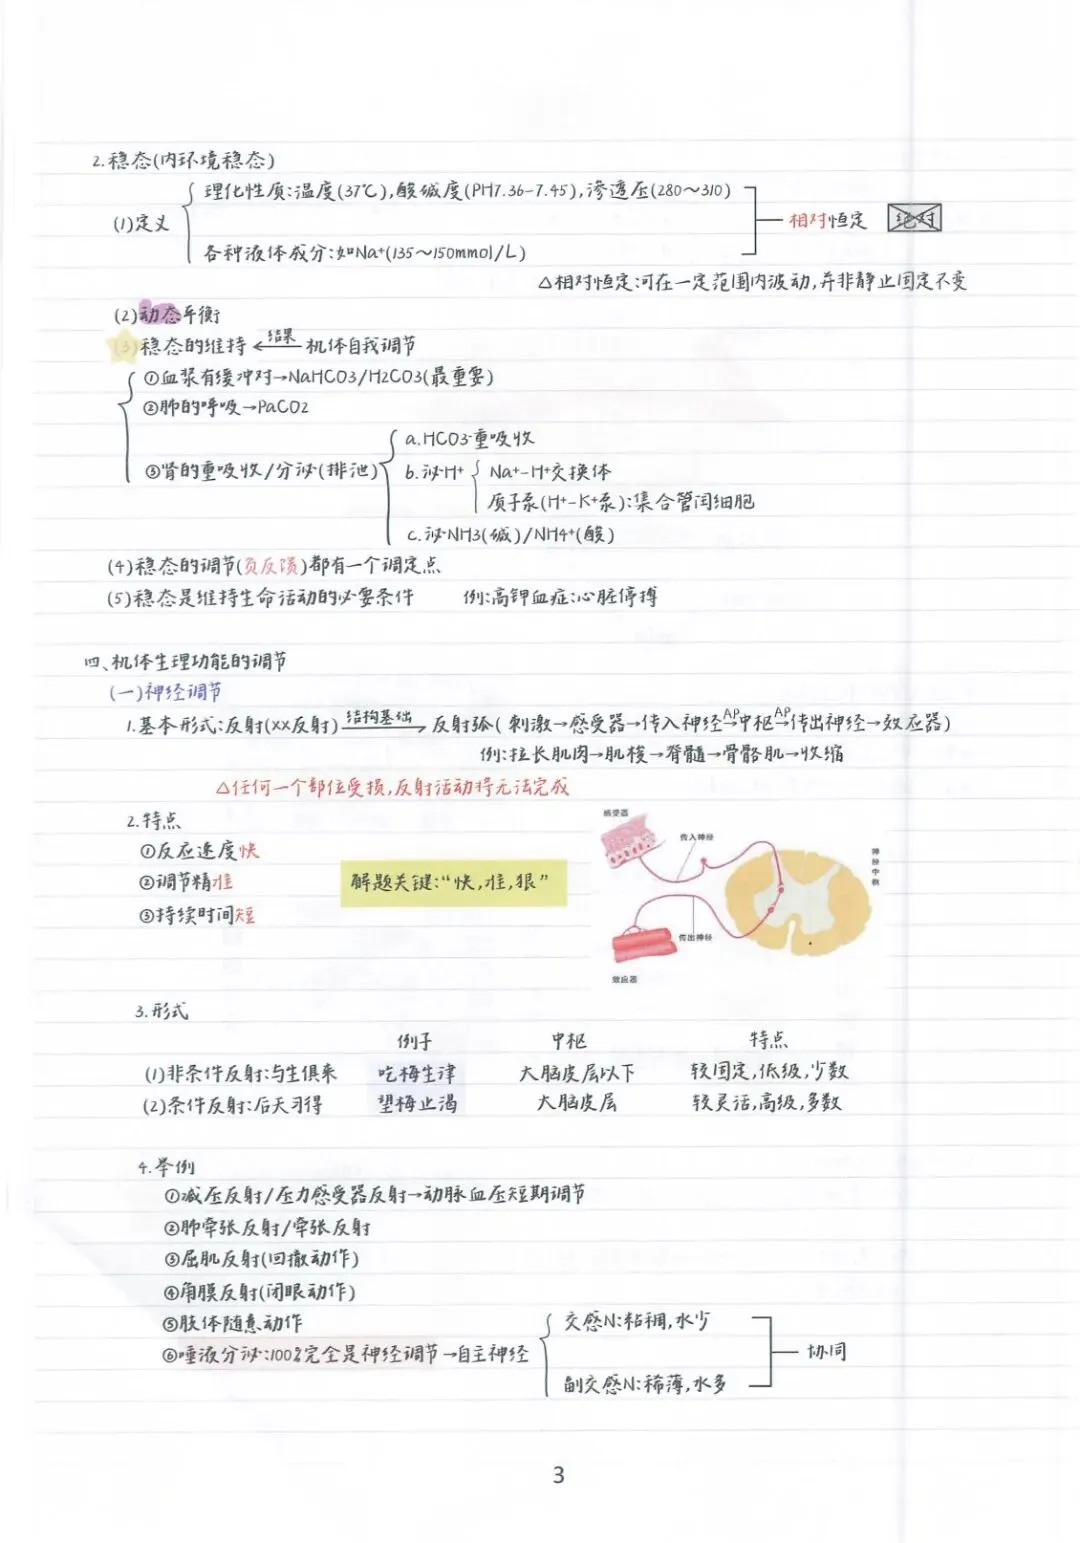 2.稳态(内环境稳态)
理化性质:温度(37℃),酸碱度(PH7.36-7.45),渗透压(280～310)
(1)定义
相对恒定 绝对
各种液体成分:如Na⁺(135～150mmol/L)
△相对恒定:可在一定范围内波动,并非静止固定不变
(2)动态平衡
(3)稳态的维持 ←结果 机体自我调节
①血浆有缓冲对→NaHCO3/H2CO3(最重要)
②肺的呼吸→PaCO2
a.HCO3⁻重吸收
③肾的重吸收/分泌(排泄)
b.泌H⁺
Na⁺-H⁺交换体
质子泵(H⁺-K⁺泵):集合管闰细胞
c.泌NH3(碱)/NH4⁺(酸)
(4)稳态的调节(负反馈)都有一个调定点
(5)稳态是维持生命活动的必要条件 例:高钾血症:心脏停搏
四、机体生理功能的调节
(一)神经调节
1.基本形式:反射(xx反射) 结构基础→ 反射弧(刺激→感受器→传入神经AP→中枢AP→传出神经→效应器)
例:拉长肌肉→肌梭→脊髓→骨骼肌→收缩
△任何一个部位受损,反射活动将无法完成
2.特点
①反应速度快
②调节精准
③持续时间短
解题关键:“快,准,狠”
感受器
传入神经
神经中枢
传出神经
效应器
3.形式
例子 中枢 特点
(1)非条件反射:与生俱来 吃梅生津 大脑皮层以下 较固定,低级,少数
(2)条件反射:后天习得 望梅止渴 大脑皮层 较灵活,高级,多数
4.举例
①减压反射/压力感受器反射→动脉血压短期调节
②肺牵张反射/牵张反射
③屈肌反射(回撤动作)
④角膜反射(闭眼动作)
⑤肢体随意动作
交感N:粘稠,水少
⑥唾液分泌:100%完全是神经调节→自主神经
协同
副交感N:稀薄,水多
3